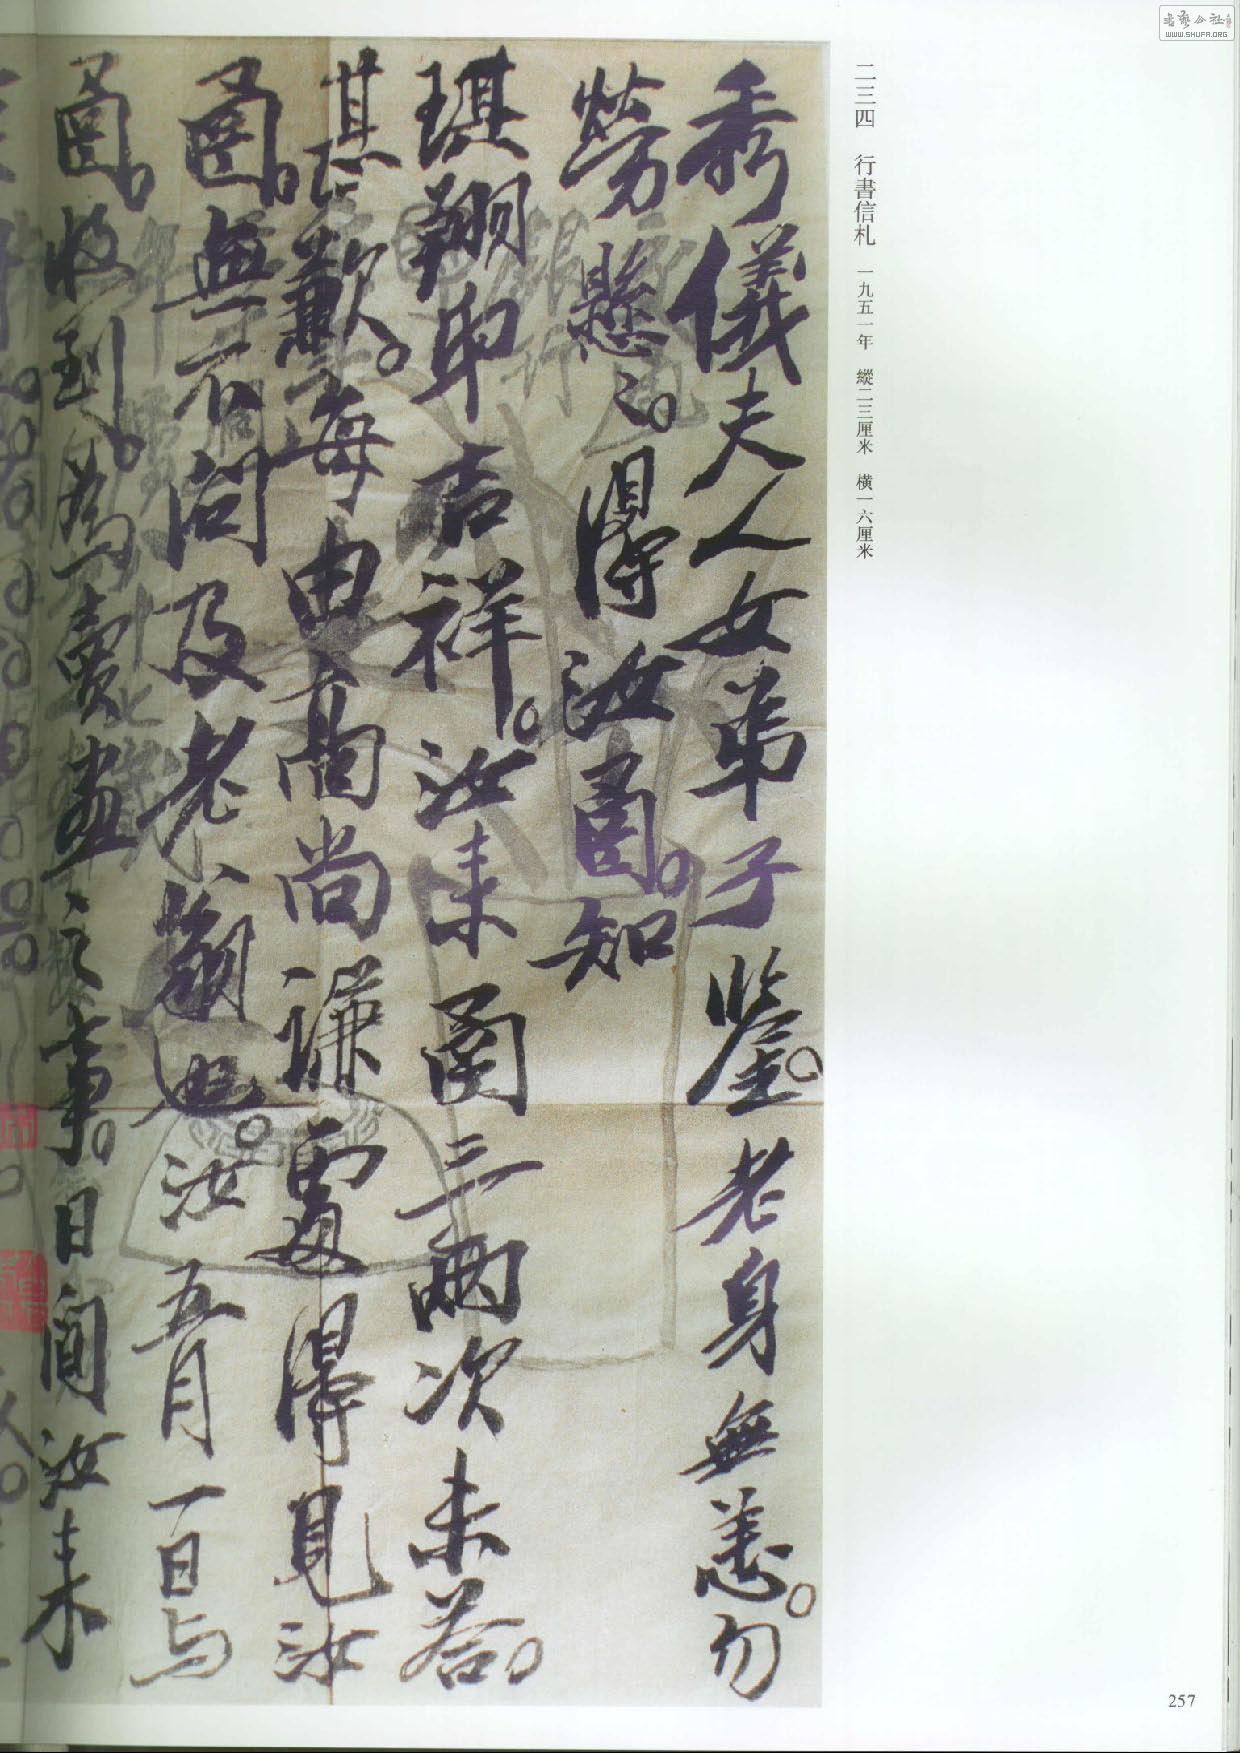 書藝公社
WWW.SHUFA.ORG
二三四　行書信札　一九五一年　縱二三厘米　横一六厘米
秀儀夫人女弟子鑒。老身無恙。勿
勞懸之。得汝函。知
琪翔印吉祥。汝来函三兩次未荅。
甚歉。每由高尚謙處得見汝
函。無不問及老翁也。汝五月一日与
函。收到。為賣畫之事。日間汝来
257